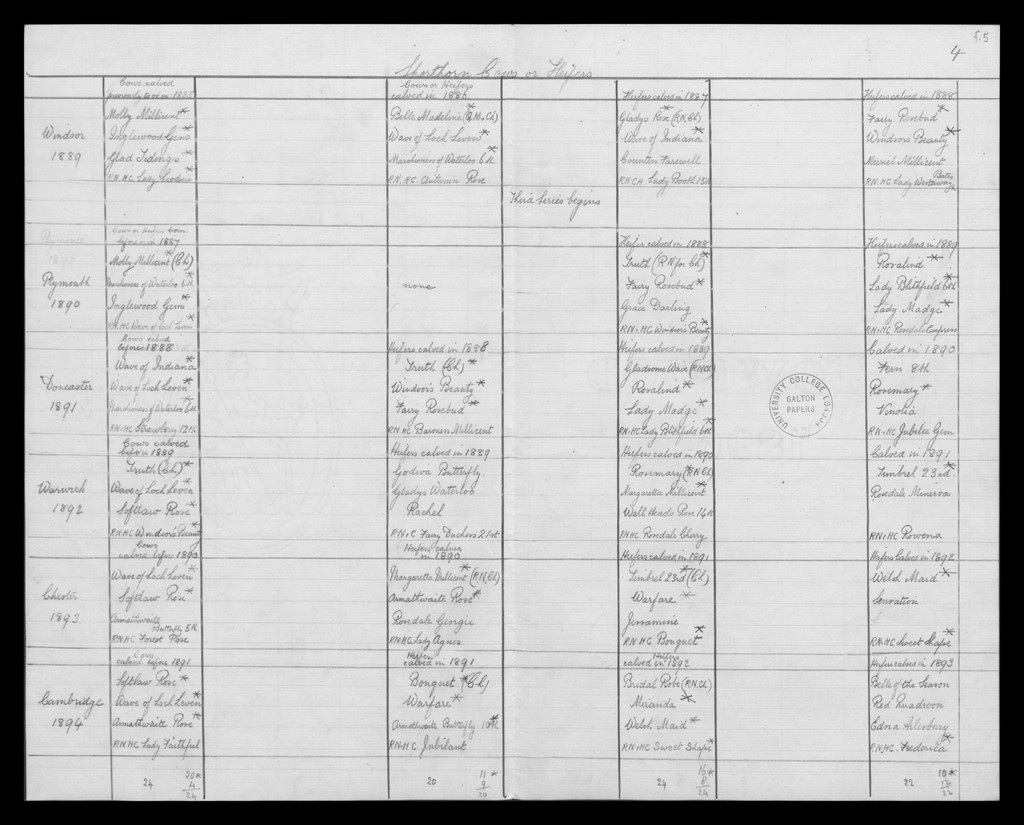 f.5
4
Shorthorn Cows or Heifers
Windsor
1889
Cows calved
previously to or in 1885
Molly Millicent *
Inglewood Gem *
Glad Tidings *
R.N. HC. Lady
Cows or Heifers
calved in 1886
Belle Madeline (R.N. Ch) *
Wave of Loch Leven *
Marchioness of Waterloo 6th *
R.N. HC. Autumn Rose
Heifers calved in 1887
Gladys Rose (R.N. Ch) *
Wave of Indiana *
Countess Farewell
R.N CH Lady Booth 15th
Heifers calved in 1888
Fairy Rosebud *
Windsor's Beauty *
Muriel Millicent
R.N. HC Lady
Third Series begins
Plymouth
1890
Plymouth
1890
Cows or Heifers born
before in 1887
Molly Millicent (Ch) *
Marchioness of Waterloo 6th *
Inglewood Gem *
R.N. HC Wave of Loch Leven *
none
Heifer calved in 1888
Truth (R N for Ch) *
Fairy Rosebud *
Grace Darling
R.N. HC Windsor's Beauty *
Heifers calved in 1889
Rosalind *
Lady Blithfield 6th *
Lady Madge *
R N. HC Rosedale Empress
Doncaster
1891
Cows calved
before 1888
Wave of Indiana *
Wave of Loch Leven *
Marchioness of Waterloo 6th *
R.N. HC Strawberry 12th
Heifers calved in 1888
Truth (Ch) *
Windsor's Beauty *
Fairy Rosebud *
R.N HC Baroness Millicent
Heifers calved in 1889
Gladsome Wave (R.N. Ch)
Rosalind *
Lady Madge *
R.N. HC Lady Blithfield 6th *
Calved in 1890
Fern 8th
Rosemary *
Vinolia
R.N. HC Jubilee Gem
Warwick
1892
Cows calved
before 1889
Truth (Ch) *
Wave of Loch Leven *
Softlaw Rose *
R.N HC Windsor's Beauty *
Heifers calved in 1889
Godiva Butterfly.
Gladys Waterloo
Rachel
R.N. & C Fairy Duchess 21st
Heifers calved in 1890
Rosemary (R.N. Ch) *
Margaretta Millicent *
Wall Heads Rose 14th
R N HC Rosedale Cherry
Calved in 1891
Timbrel 23rd *
Rosedale Minerva
R N. HC Rowena
Chester
1893
Cows
calved before 1890
Wave of Loch Leven *
Softlaw Rose *
Armathwaite
Butterfly 5th
R.N. HC Forest Rose
Heifers calved
in 1890
Margaretta Millicent (R.N. Ch) *
Armathwaite Rose *
Rosedale Georgie
R.N. HC. Lady Agnes
Heifers calved in 1891
Timbrel 23rd (Ch) *
Warfare *
Jessamine
R N HC Bouquet *
Heifers Calved in 1892
Welsh Maid *
Sensation
R.N. HC. Sweet Shape *
Cambridge
1894
Cows
calved before 1891
Softlaw Rose *
Wave of Loch Leven *
Armathwaite Rose *
R N HC Lady Faithful
Heifers
calved in 1891
Bouquet (Ch) *
Warfare *
Armathwaite Butterfly 10th *
R N HC Jubilant
Heifers
calved in 1892
Bridal Robe (R.N. Ch)
Miranda *
Welsh Maid *
R.N. HC Sweet Shape *
Heifers calved in 1893
Belle of the Season
Red Quadroon
Edna Ailesbury
R.N. HC. Frederica *
24
20 *
4
24
20
11 *
9
20
24
16 *
8
24
22
10 *
12
22
UNIVERSITY COLLEGE LONDON
GALTON
PAPERS